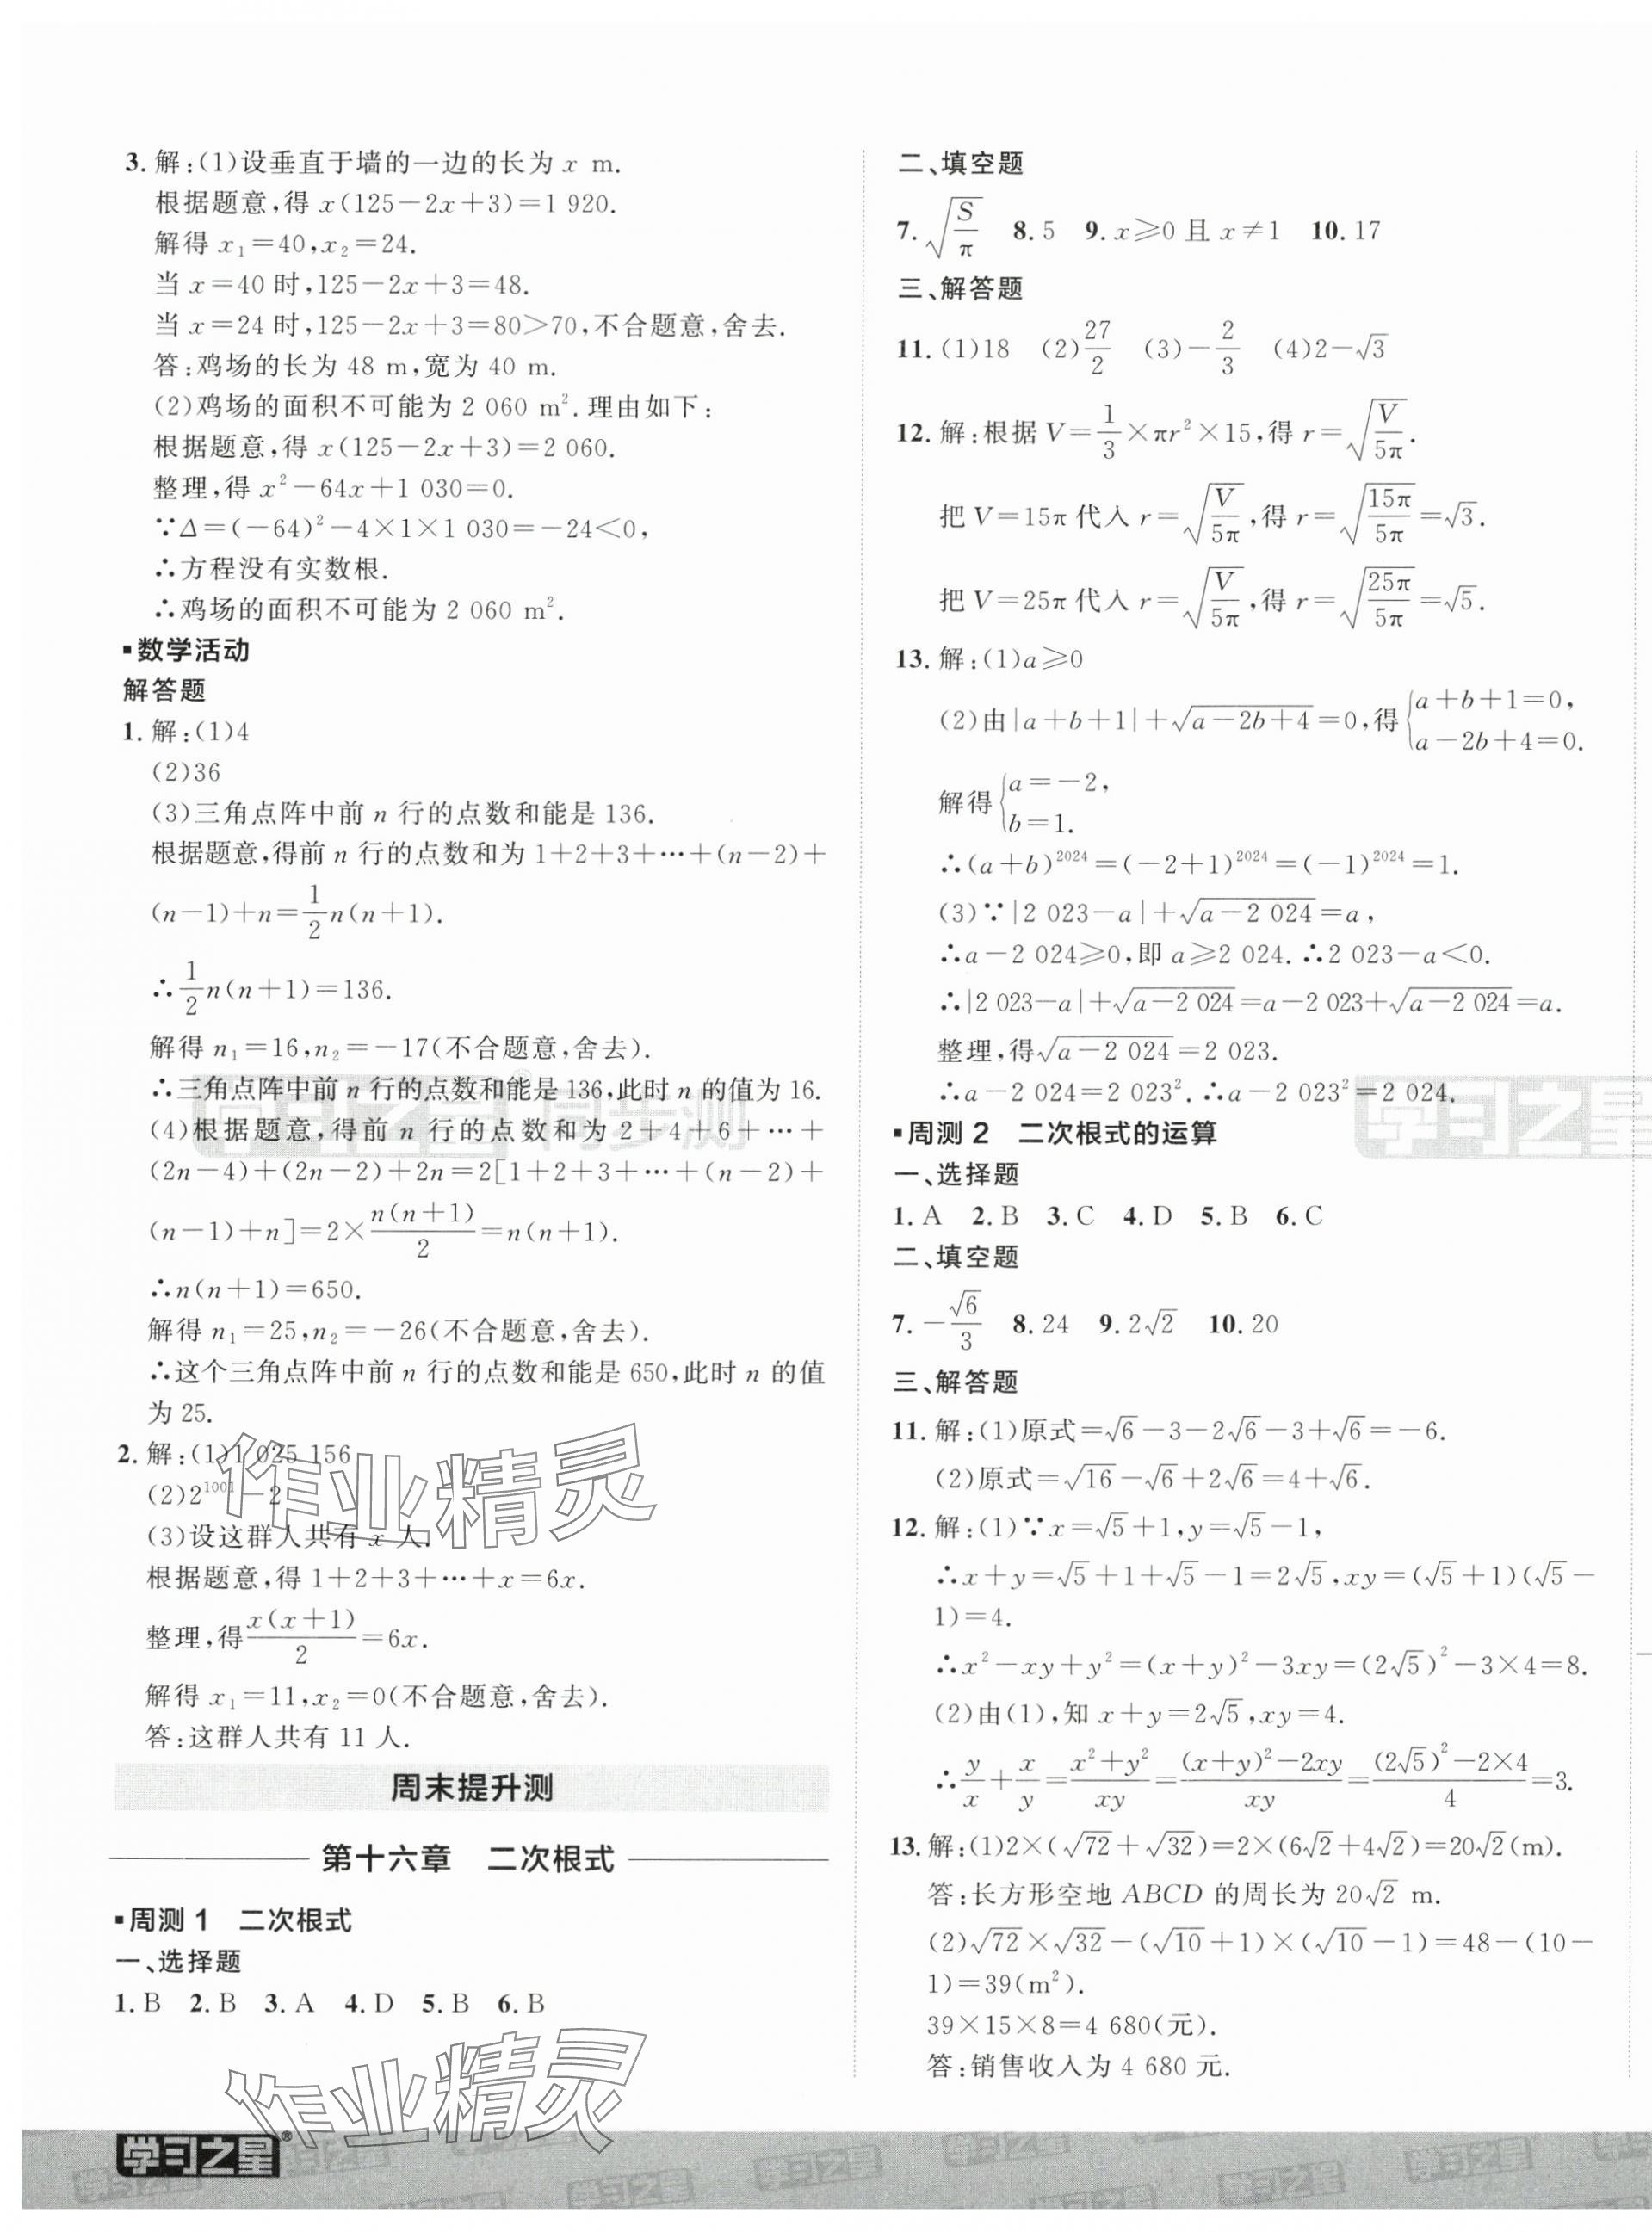 3. 解:(1)设垂直于墙的一边的长为 x m.
根据题意,得 x(125-2x+3)=1 920.
解得 x₁=40,x₂=24.
当 x=40 时,125-2x+3=48.
当 x=24 时,125-2x+3=80>70,不合题意,舍去.
答:鸡场的长为 48 m,宽为 40 m.
(2)鸡场的面积不可能为 2 060 m².理由如下:
根据题意,得 x(125-2x+3)=2 060.
整理,得 x²-64x+1 030=0.
∵Δ=(-64)²-4×1×1 030=-24<0,
∴方程没有实数根.
∴鸡场的面积不可能为 2 060 m².
▪数学活动
解答题
1. 解:(1)4
(2)36
(3)三角点阵中前 n 行的点数和能是 136.
根据题意,得前 n 行的点数和为 1+2+3+⋯+(n-2)+
(n-1)+n=1/2 n(n+1).
∴1/2 n(n+1)=136.
解得 n₁=16,n₂=-17(不合题意,舍去).
∴三角点阵中前 n 行的点数和能是 136,此时 n 的值为 16.
(4)根据题意,得前 n 行的点数和为 2+4+6+⋯+
(2n-4)+(2n-2)+2n=2[1+2+3+⋯+(n-2)+
(n-1)+n]=2×n(n+1)/2=n(n+1).
∴n(n+1)=650.
解得 n₁=25,n₂=-26(不合题意,舍去).
∴这个三角点阵中前 n 行的点数和能是 650,此时 n 的值
为 25.
2. 解:(1)1 025 156
(2)2¹⁰⁰¹-2
(3)设这群人共有 x 人.
根据题意,得 1+2+3+⋯+x=6x.
整理,得x(x+1)/2=6x.
解得 x₁=11,x₂=0(不合题意,舍去).
答:这群人共有 11 人.
周末提升测
第十六章 二次根式
▪周测 1 二次根式
一、选择题
1. B 2. B 3. A 4. D 5. B 6. B
二、填空题
7. √(S/π) 8. 5 9. x⩾0 且 x≠1 10. 17
三、解答题
11. (1)18 (2)27/2 (3)-2/3 (4)2-√3
12. 解:根据 V=1/3×πr²×15,得 r=√(V/5π).
把 V=15π 代入 r=√(V/5π),得 r=√(15π/5π)=√3.
把 V=25π 代入 r=√(V/5π),得 r=√(25π/5π)=√5.
13. 解:(1)a⩾0
(2)由|a+b+1|+√(a-2b+4)=0,得{a+b+1=0,
a-2b+4=0.
解得{a=-2,
b=1.
∴(a+b)²⁰²⁴=(-2+1)²⁰²⁴=(-1)²⁰²⁴=1.
(3)∵|2 023-a|+√(a-2 024)=a,
∴a-2 024⩾0,即 a⩾2 024.∴2 023-a<0.
∴|2 023-a|+√(a-2 024)=a-2 023+√(a-2 024)=a.
整理,得√(a-2 024)=2 023.
∴a-2 024=2 023².∴a-2 023²=2 024.
▪周测 2 二次根式的运算
一、选择题
1. A 2. B 3. C 4. D 5. B 6. C
二、填空题
7. -√6/3 8. 24 9. 2√2 10. 20
三、解答题
11. 解:(1)原式=√6-3-2√6-3+√6=-6.
(2)原式=√16-√6+2√6=4+√6.
12. 解:(1)∵x=√5+1,y=√5-1,
∴x+y=√5+1+√5-1=2√5,xy=(√5+1)(√5-
1)=4.
∴x²-xy+y²=(x+y)²-3xy=(2√5)²-3×4=8.
(2)由(1),知 x+y=2√5,xy=4.
∴y/x+x/y=(x²+y²)/xy=((x+y)²-2xy)/xy=((2√5)²-2×4)/4=3.
13. 解:(1)2×(√72+√32)=2×(6√2+4√2)=20√2(m).
答:长方形空地 ABCD 的周长为 20√2 m.
(2)√72×√32-(√10+1)×(√10-1)=48-(10-
1)=39(m²).
39×15×8=4 680(元).
答:销售收入为 4 680 元.
作业精灵
作业精灵
学习之星 同步测
学习之星
学习之星®